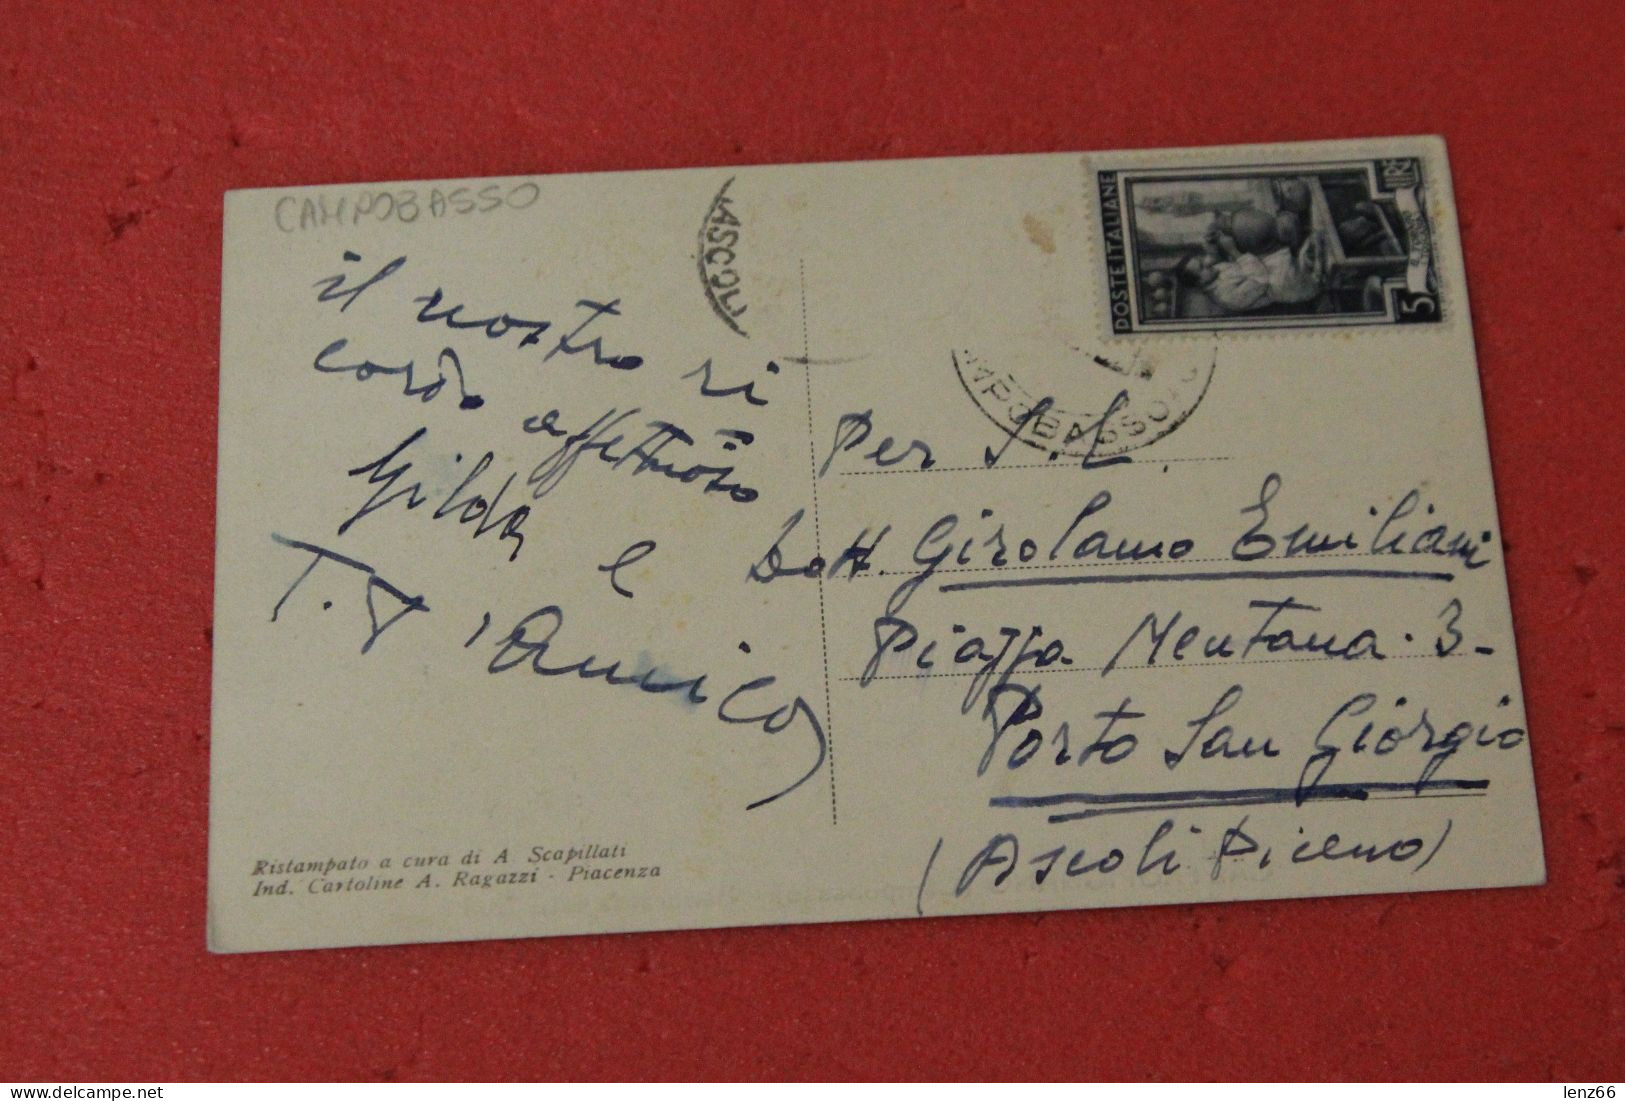 CAMPOBASSO
il nostro ri
cordo affettuoso
Gilda e
T. D'Amico
Ristampato a cura di A. Scapillati
Ind. Cartoline A. Ragazzi - Piacenza
POSTE ITALIANE
LIRE
5
MPOBASSO
Per S.E.
Dott. Girolamo Emiliani
Piazza Mentana. 3-
Porto San Giorgio
(Ascoli Piceno)
lenz66